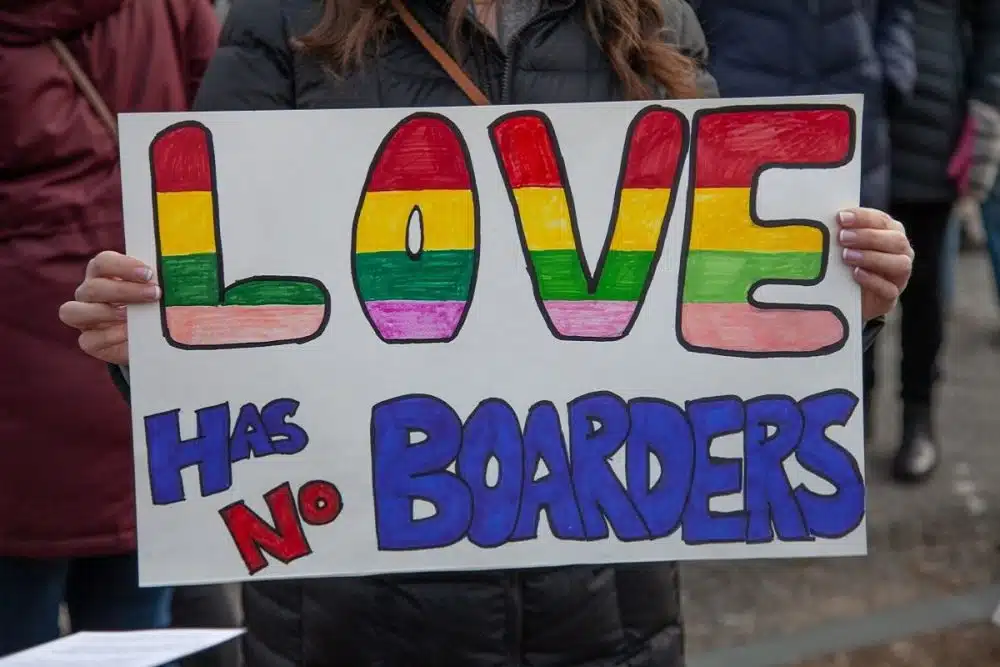 LOVE
HAS
NO BOARDERS